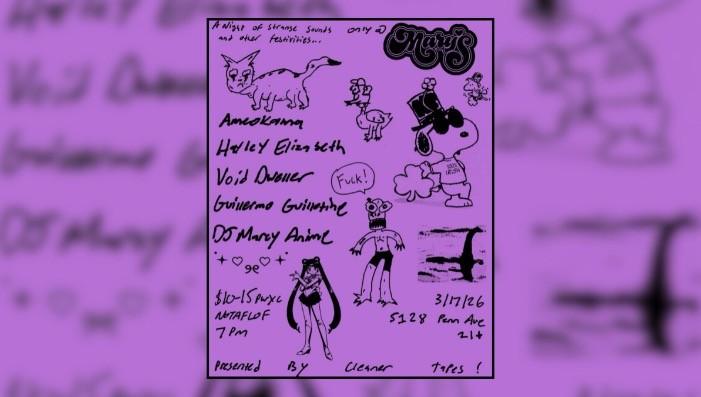 A Night of strange sounds
and other festivities...
only @
Mary's
Ameokama
Harley Elizabeth
Void Dweller
Fuck!
Guillermo Guillotine
DJ Marcy Anime
$10-15 PWYC
NOTAFLOF
7 PM
3/17/26
5128 Penn Ave
21+
Presented By Cleaner Tapes!